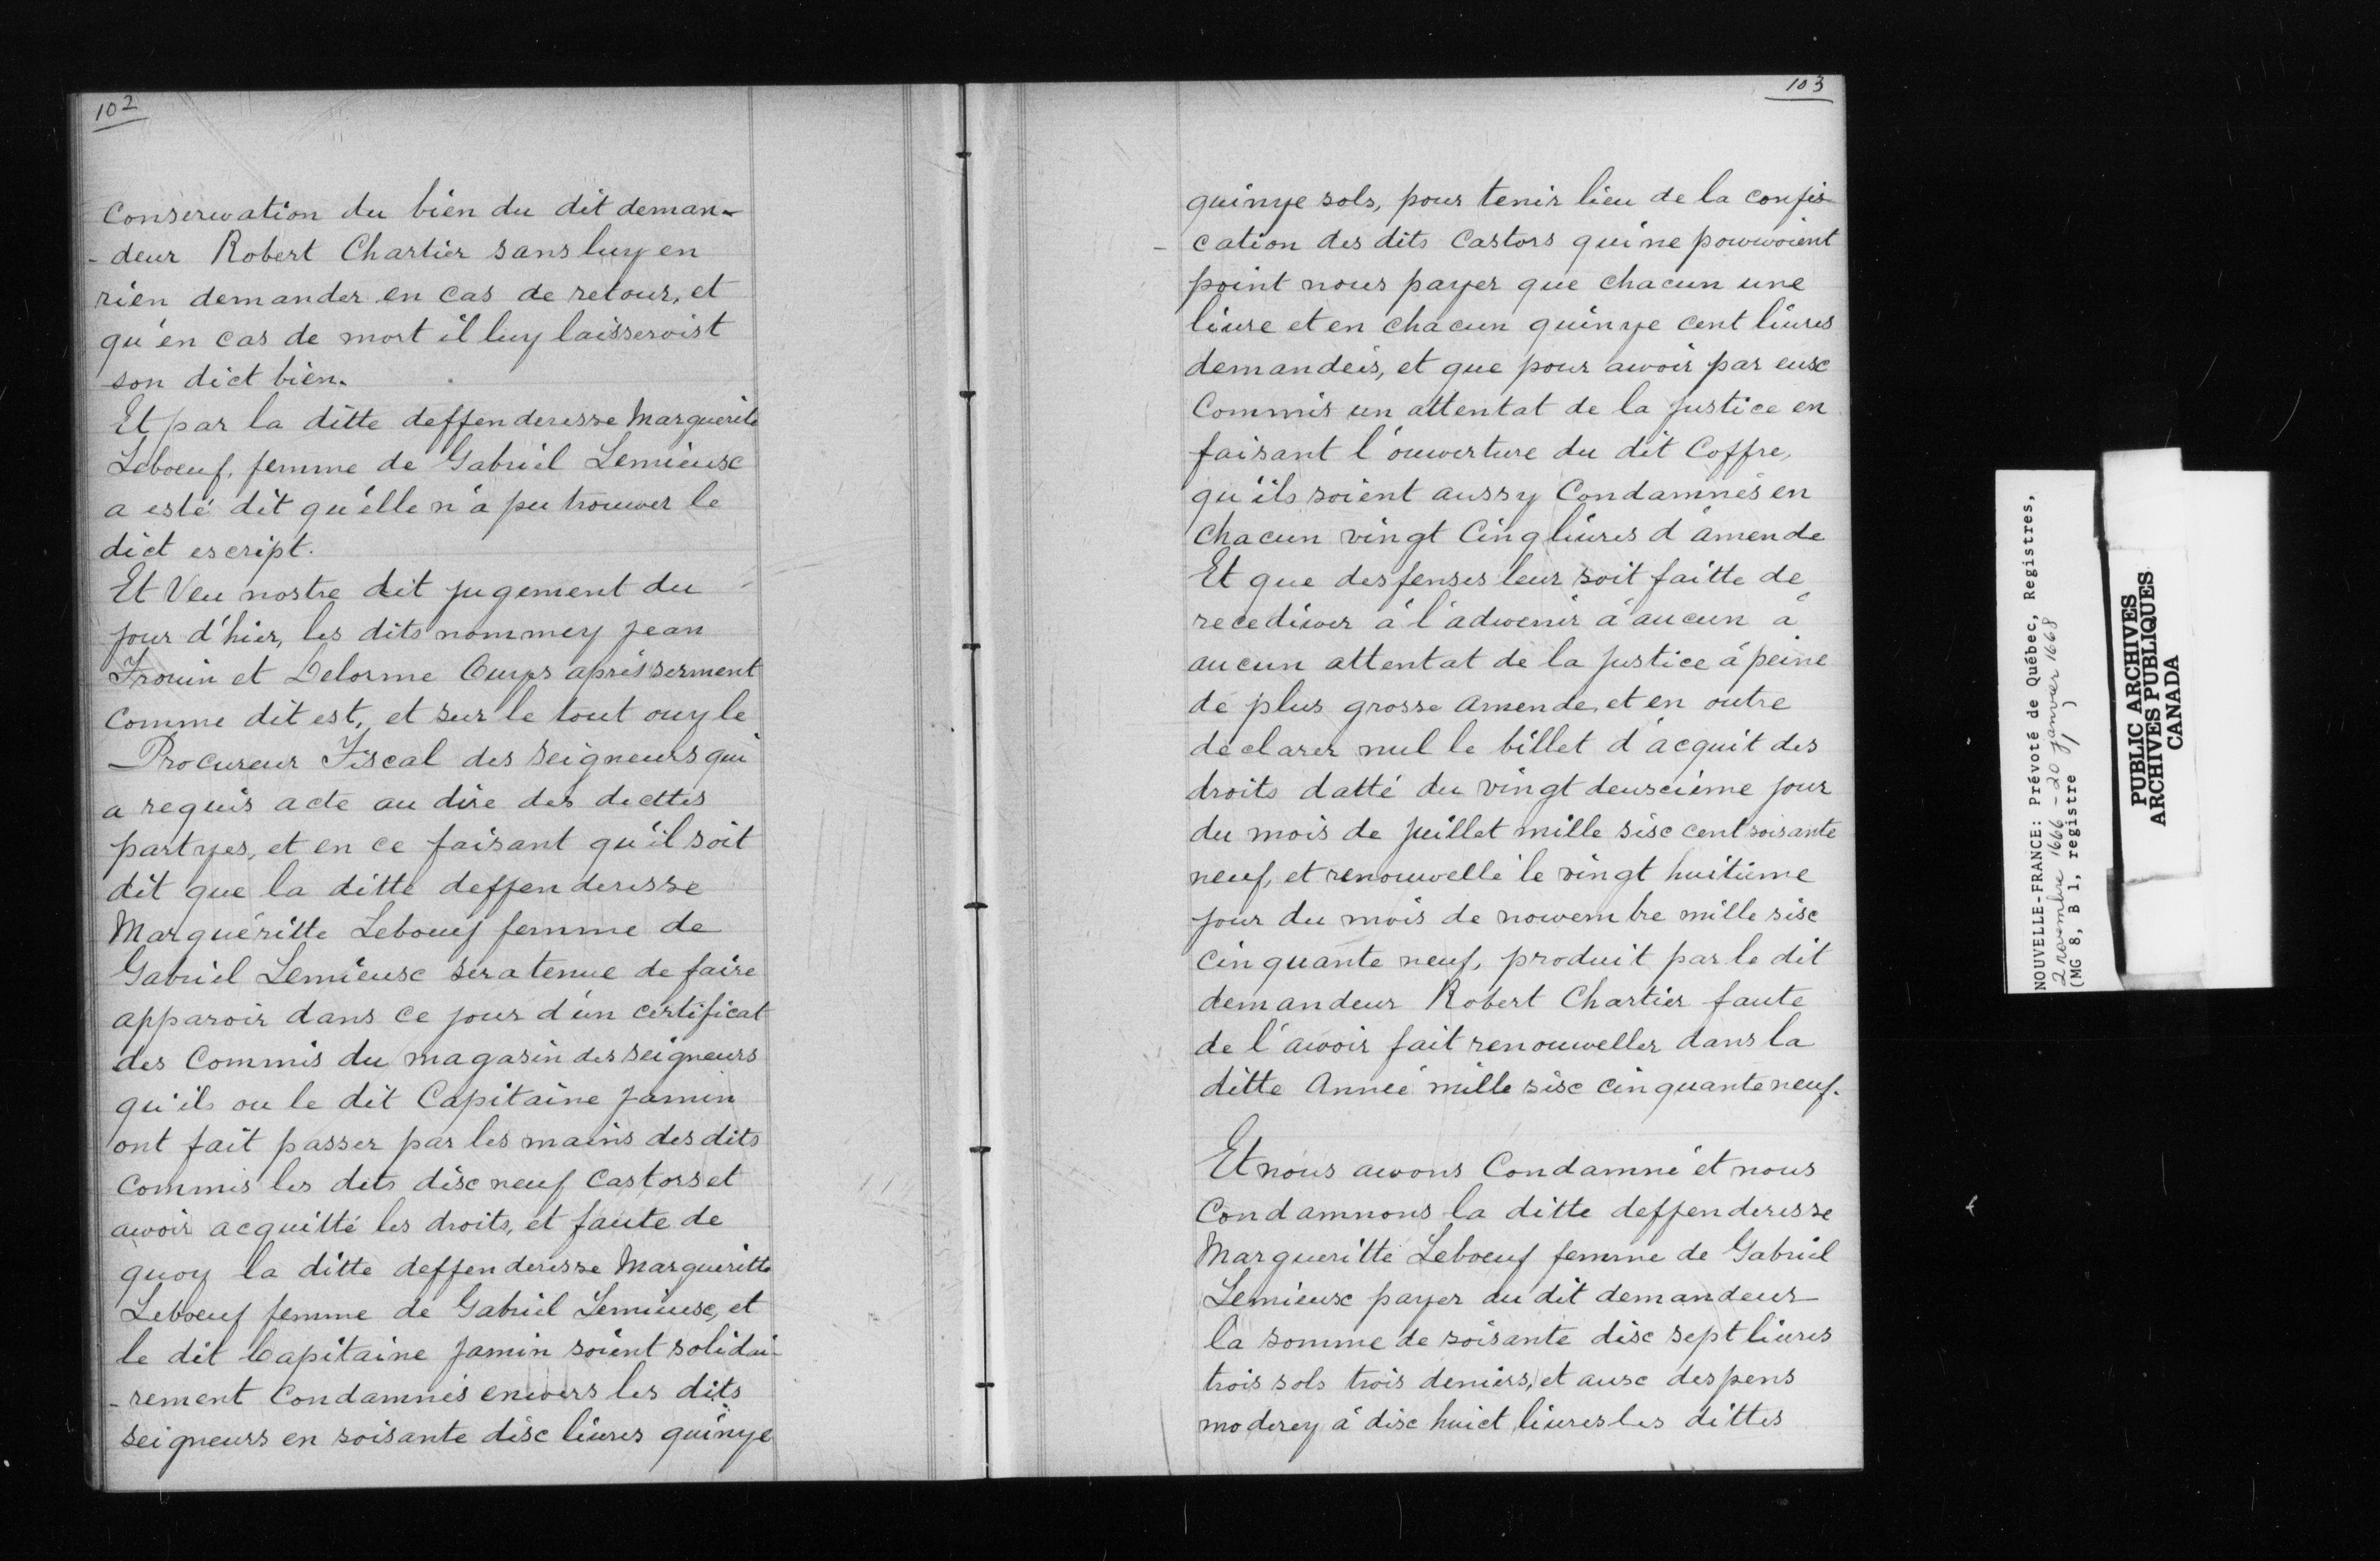 102
Conserwation du bien du dit deman-
-deur Robert Chartier sans luy en
rien demander en cas de retour, et
qu'en cas de mort il luy laisseroist
son dict bien.
Et par la ditte deffenderesse Marguerite
Leboeuf, femme de Gabriel Lemieusc
a esté dit qu'elle n'a pu trouwer le
dict escript.
Et Veu nostre dit jugement du
jour d'hier, les dits nommey Jean
Frouin et Delorme Ouys aprés serment
Comme dit est, et sur le tout ouy le
Procureur Fiscal des Seigneurs qui
a requis acte au dire des dicttes
partyes, et en ce faisant qu'il soit
dit que la ditte deffenderesse
Marguéritte Leboeuf femme de
Gabriel Lemieusc sera tenue de faire
apparoir dans ce jour d'un certificat
des Commis du magasin des seigneurs
qu'ils ou le dit Capitaine Jamin
ont fait passer par les mains des dits
Commis les dits disc neuf Castors et
awoir acquitté les droits, et faute de
quoy la ditte deffenderesse Margueritte
Leboeuf femme de Gabriel Lemieusc, et
le dit Capitaine Jamin soient solidai-
-rement Condamnés enwers les dits
seigneurs en soisante disc liures quinye
103
quinye sols, pour tenir lieu de la confis-
-cation des dits Castors qui ne pouwoient
point nous payer que chacun une
liure et en chacun quinye cent liures
demandeis, et que pour awoir par eusc
Commis un attentat de la justice en
faisant l'ouwerture du dit Coffre,
qu'ils soient aussy Condamnés en
chacun vingt Cinq liures d'amende
Et que desfenses leur soit faitte de
recediwer à l'adwenir à aucun à
aucun attentat de la justice à peine
de plus grosse amende, et en outre
declarer nul le billet d'acquit des
droits datté du vingt deuscième jour
du mois de juillet mille sisc cent soisante
neuf, et renouwellé le vingt huitième
jour du mois de nowembre mille sisc
Cinquante neuf, produit par le dit
demandeur Robert Chartier faute
de l'awoir fait renouweller dans la
ditte Anneé mille sisc cinquante neuf.
Et nous awons Condamné et nous
Condamnons la ditte deffenderesse
Margueritte Leboeuf femme de Gabriel
Lemieusc payer au dit demandeur
la somme de soisante disc sept liures
trois sols trois deniers, et ausc despens
moderey à disc huict liures les dittes
NOUVELLE-FRANCE: Prévoté de Québec, Registres,
2 novembre 1666 - 20 janvier 1668
(MG 8, B 1, registre 1)
PUBLIC ARCHIVES
ARCHIVES PUBLIQUES
CANADA